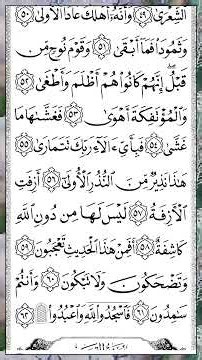 ٱلشِّعۡرَىٰ ٤٩ وَأَنَّهُۥٓ أَهۡلَكَ عَادًا ٱلۡأُولَىٰ ٥٠
وَثَمُودَاْ فَمَآ أَبۡقَىٰ ٥١ وَقَوۡمَ نُوحٖ مِّن
قَبۡلُۖ إِنَّهُمۡ كَانُواْ هُمۡ أَظۡلَمَ وَأَطۡغَىٰ ٥٢
وَٱلۡمُؤۡتَفِكَةَ أَهۡوَىٰ ٥٣ فَغَشَّىٰهَا مَا
غَشَّىٰ ٥٤ فَبِأَيِّ ءَالَآءِ رَبِّكَ تَتَمَارَىٰ ٥٥
هَٰذَا نَذِيرٞ مِّنَ ٱلنُّذُرِ ٱلۡأُولَىٰٓ ٥٦ أَزِفَتِ
ٱلۡأٓزِفَةُ ٥٧ لَيۡسَ لَهَا مِن دُونِ ٱللَّهِ
كَاشِفَةٌ ٥٨ أَفَمِنۡ هَٰذَا ٱلۡحَدِيثِ تَعۡجَبُونَ ٥٩
وَتَضۡحَكُونَ وَلَا تَبۡكُونَ ٦٠ وَأَنتُمۡ
سَٰمِدُونَ ٦١ فَٱسۡجُدُواْۤ لِلَّهِۤ وَٱعۡبُدُواْ۩ ٦٢